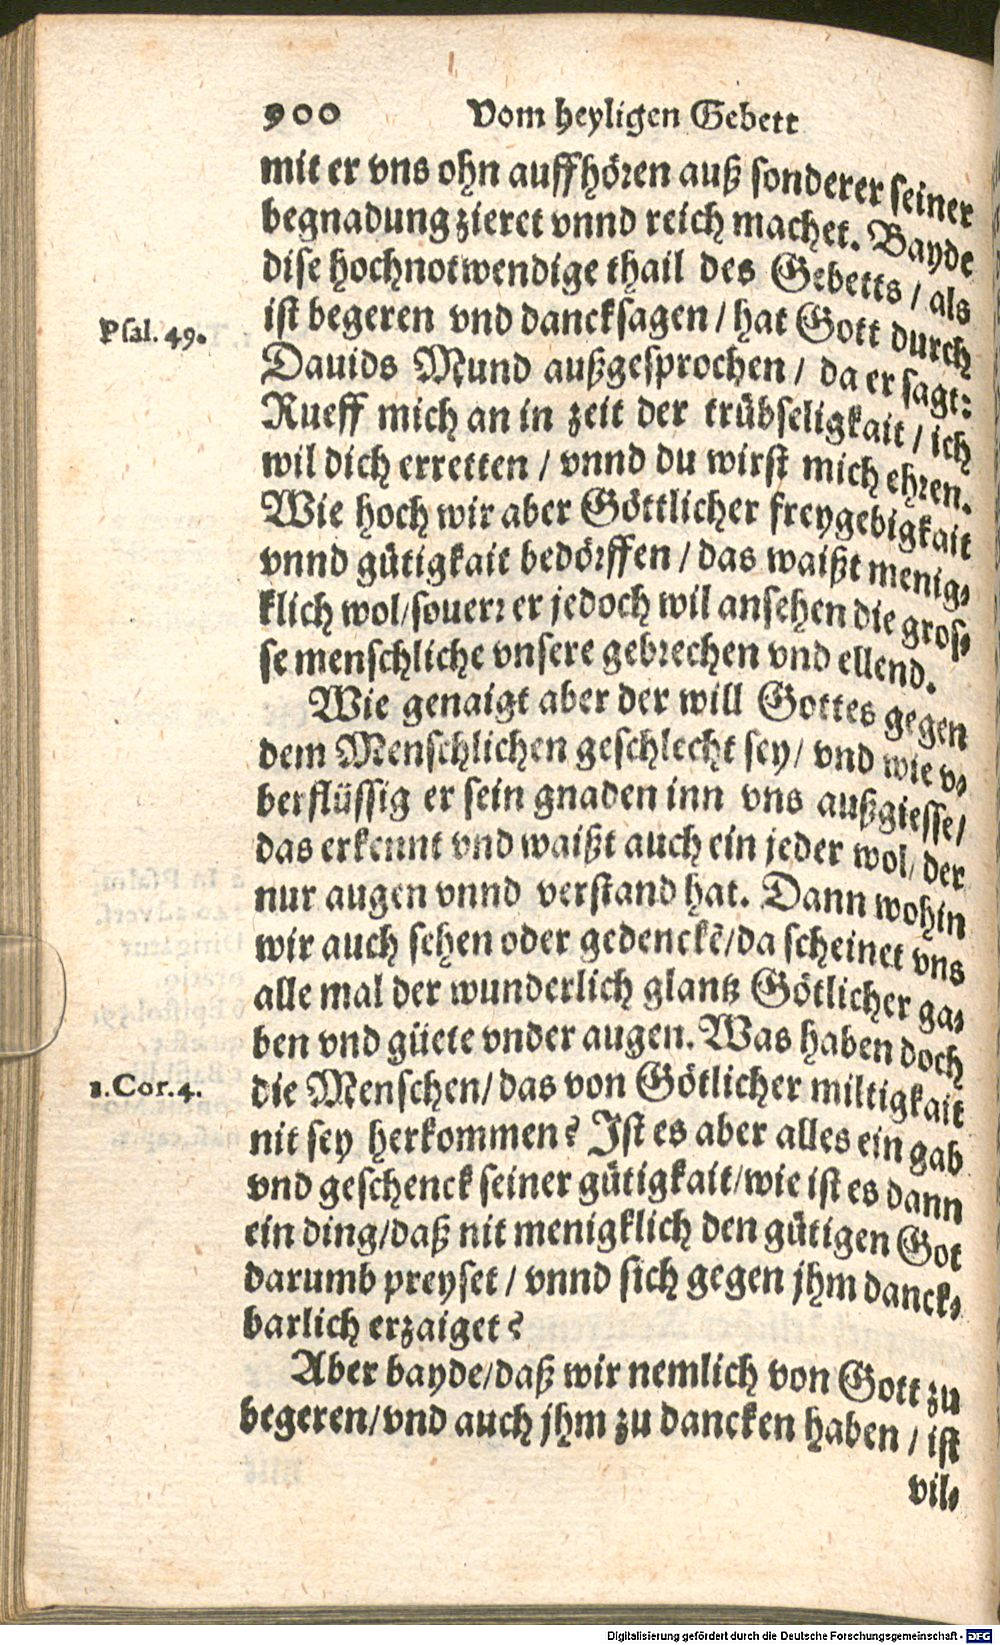 900 Vom heyligen Gebett
mit er vns ohn auffhören auß sonderer seiner
begnadung zieret vnnd reich machet. Bayde
dise hochnotwendige thail des Gebetts / als
ist begeren vnd dancksagen / hat Gott durch
Psal. 49.
Dauids Mund außgesprochen / da er sagt:
Rueff mich an in zeit der trübseligkait / ich
wil dich erretten / vnnd du wirst mich ehren.
Wie hoch wir aber Göttlicher freygebigkait
vnnd gütigkait bedörffen / das waißt menig-
klich wol / souerr er jedoch wil ansehen die gros-
se menschliche vnsere gebrechen vnd ellend.
Wie genaigt aber der will Gottes gegen
dem Menschlichen geschlecht sey / vnd wie v-
berflüssig er sein gnaden inn vns außgiesse /
das erkennt vnd waißt auch ein jeder wol / der
nur augen vnnd verstand hat. Dann wohin
wir auch sehen oder gedenckē / da scheinet vns
alle mal der wunderlich glantz Götlicher ga-
ben vnd güete vnder augen. Was haben doch
1. Cor. 4.
die Menschen / das von Götlicher miltigkait
nit sey herkommen? Ist es aber alles ein gab
vnd geschenck seiner gütigkait / wie ist es dann
ein ding / daß nit menigklich den gütigen Got
darumb preyset / vnnd sich gegen jhm danck-
barlich erzaiget?
Aber bayde / daß wir nemlich von Gott zu
begeren / vnd auch jhm zu dancken haben / ist
vil-
Digitalisierung gefördert durch die Deutsche Forschungsgemeinschaft - DFG